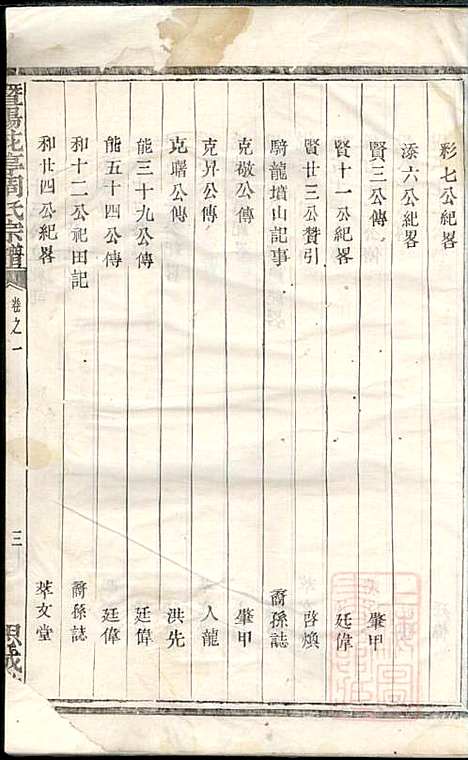 彩七公紀畧
添六公紀畧
賢三公傳 肇甲
賢十一公紀畧 廷偉
賢廿三公贊引 啓煥
騎龍墳山記事 裔孫誌
克敬公傳 肇甲
克昇公傳 人龍
克曙公傳 洪先
能三十九公傳 廷偉
能五十四公傳 廷偉
和十二公祀田記 裔孫誌
和廿四公紀畧 萃文堂
暨陽花亭周氏宗譜 卷之一 三